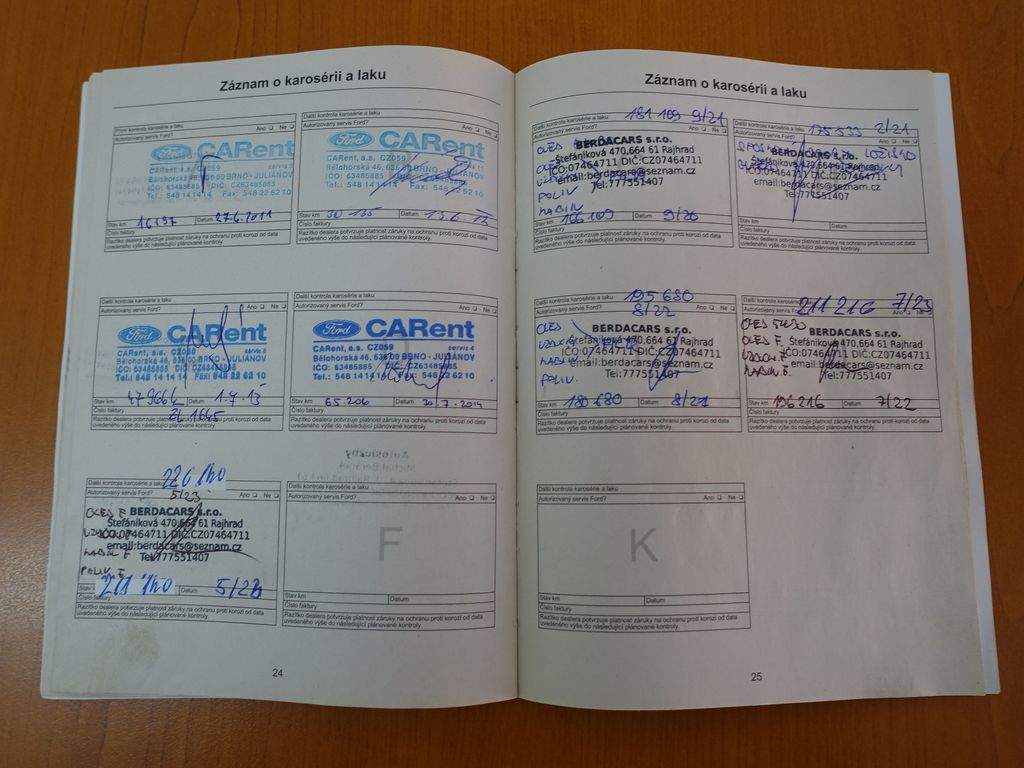 Záznam o karosérii a laku
První kontrola karosérie a laku
Autorizovaný servis Ford? Ano ❏ Ne ❏
Ford CARent
CARent, a.s. CZ059
Bělohorská 46, 636 00 BRNO - JULIÁNOV
IČO: 63485885 DIČ: CZ63485885
Tel.: 548 14 14 14 Fax: 548 22 62 10
Stav km 16197 Datum 27.6.2011
Číslo faktury
Razítko dealera potvrzuje platnost záruky na ochranu proti korozi od data
uvedeného výše do následující plánované kontroly.
Další kontrola karosérie a laku
Autorizovaný servis Ford? Ano ❏ Ne ❏
Ford CARent
CARent, a.s. CZ059
Bělohorská 46, 636 00 BRNO - JULIÁNOV
IČO: 63485885
Tel.: 548 14 14 14 Fax: 548 22 62 10
Stav km 30 135 Datum
Číslo faktury
Razítko dealera potvrzuje platnost záruky na ochranu proti korozi od data
uvedeného výše do následující plánované kontroly.
Další kontrola karosérie a laku
Autorizovaný servis Ford? Ano ❏ Ne ❏
Ford CARent
servis 4
CARent, a.s. CZ059
Bělohorská 46, 636 00 BRNO - JULIÁNOV
IČO: 63485885
Tel.: 548 14 14 14 Fax: 548 22 62 10
Stav km 47966 Datum 1.7.13
Číslo faktury
Razítko dealera potvrzuje platnost záruky na ochranu proti korozi od data
uvedeného výše do následující plánované kontroly.
Další kontrola karosérie a laku
Autorizovaný servis Ford? Ano ❏ Ne ❏
Ford CARent
servis 4
CARent, a.s. CZ059
Bělohorská 46, 636 00 BRNO - JULIÁNOV
IČO: 63485885 DIČ: CZ63485885
Tel.: 548 14 14 14 Fax: 548 22 62 10
Stav km 65.206 Datum 30.7.2014
Číslo faktury
Razítko dealera potvrzuje platnost záruky na ochranu proti korozi od data
uvedeného výše do následující plánované kontroly.
Další kontrola karosérie a laku
Autorizovaný servis Ford? 5/23 Ano ❏ Ne ❏
OLEJ F.
BERDACARS s.r.o.
Štefánikova 470,664 61 Rajhrad
IČO:07464711 DIČ:CZ07464711
email:berdacars@seznam.cz
Tel:777551407
Stav km Datum
Číslo faktury
Razítko dealera potvrzuje platnost záruky na ochranu proti korozi od data
uvedeného výše do následující plánované kontroly.
Další kontrola karosérie a laku
Autorizovaný servis Ford? Ano ❏ Ne ❏
F
Stav km Datum
Číslo faktury
Razítko dealera potvrzuje platnost záruky na ochranu proti korozi od data
uvedeného výše do následující plánované kontroly.
24
Záznam o karosérii a laku
181 109 9/21
Další kontrola karosérie a laku
Autorizovaný servis Ford? Ano ❏ Ne ❏
OLEJ
BERDACARS s.r.o.
Štefánikova 470,664 61 Rajhrad
IČO:07464711 DIČ:CZ07464711
email:berdacars@seznam.cz
Tel:777551407
POLIV
KABIN
Stav km 166 109 9/20
Číslo faktury
Razítko dealera potvrzuje platnost záruky na ochranu proti korozi od data
uvedeného výše do následující plánované kontroly.
175 533 2/21
Další kontrola karosérie a laku
LOŽISKO
BERDACARS s.r.o.
Štefánikova 470,664 61 Rajhrad
IČO:07464711 DIČ:CZ07464711
email:berdacars@seznam.cz
Tel:777551407
Stav km Datum
Číslo faktury
Razítko dealera potvrzuje platnost záruky na ochranu proti korozi od data
uvedeného výše do následující plánované kontroly.
195 680
8/22
Další kontrola karosérie a laku
Autorizovaný servis Ford? Ano ❏ Ne ❏
OLEJ
VZDUCH
KABIN
POLIV.
BERDACARS s.r.o.
Štefánikova 470,664 61 Rajhrad
IČO:07464711 DIČ:CZ07464711
email:berdacars@seznam.cz
Tel:777551407
Stav km 180 680 Datum 8/21
Číslo faktury
Razítko dealera potvrzuje platnost záruky na ochranu proti korozi od data
uvedeného výše do následující plánované kontroly.
211 216 7/23
Další kontrola karosérie a laku
Autorizovaný servis Ford? Ano ❏ Ne ❏
OLEJ F.
VZDUCH F.
KABIN F.
BERDACARS s.r.o.
Štefánikova 470,664 61 Rajhrad
IČO:07464711 DIČ:CZ07464711
email:berdacars@seznam.cz
Tel:777551407
Stav km 196 216 Datum 7/22
Číslo faktury
Razítko dealera potvrzuje platnost záruky na ochranu proti korozi od data
uvedeného výše do následující plánované kontroly.
Další kontrola karosérie a laku
Autorizovaný servis Ford? Ano ❏ Ne ❏
K
Stav km Datum
Číslo faktury
Razítko dealera potvrzuje platnost záruky na ochranu proti korozi od data
uvedeného výše do následující plánované kontroly.
25